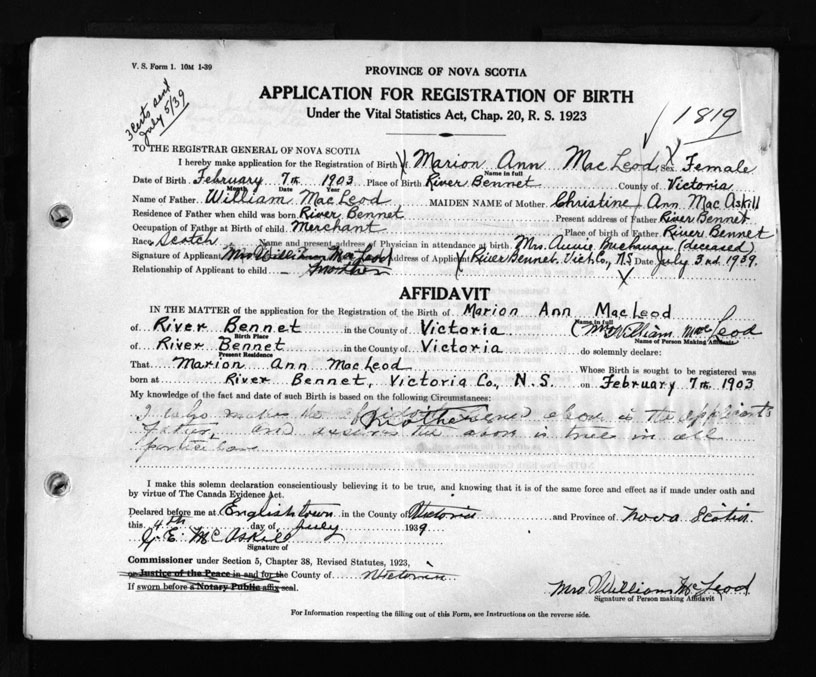 V. S. Form 1. 10M 1-39
3 Certs sent
July 5/39
PROVINCE OF NOVA SCOTIA
APPLICATION FOR REGISTRATION OF BIRTH
Under the Vital Statistics Act, Chap. 20, R. S. 1923
1819
TO THE REGISTRAR GENERAL OF NOVA SCOTIA
I hereby make application for the Registration of Birth of Marion Ann MacLeod Sex Female
Name in full
Date of Birth February 7th 1903 Place of Birth River Bennet County of Victoria
Month Date Year
Name of Father William MacLeod MAIDEN NAME of Mother Christine Ann MacAskill
Residence of Father when child was born River Bennet Present address of Father River Bennet
Occupation of Father at Birth of child. Merchant Place of birth of Father River Bennet
Race Scotch Name and present address of Physician in attendance at birth. Mrs. Annie (deceased)
Signature of Applicant Mrs William MacLeod Address of Applicant River Bennet Vict Co, N.S Date July 3rd 1939.
Relationship of Applicant to child mother
AFFIDAVIT
IN THE MATTER of the application for the Registration of the Birth of Marion Ann MacLeod
Name in full
of River Bennet in the County of Victoria (Mrs) William MacLeod
Birth Place Name of Person Making Affidavit
of River Bennet in the County of Victoria do solemnly declare:
Present Residence
That Marion Ann MacLeod Whose Birth is sought to be registered was
born at River Bennet, Victoria Co., N.S. on February 7th 1903
My knowledge of the fact and date of such Birth is based on the following Circumstances:
I who makes the affidavit mother above is the applicants
father, and the above is true in all
I make this solemn declaration conscientiously believing it to be true, and knowing that it is of the same force and effect as if made under oath and
by virtue of The Canada Evidence Act.
Declared before me at Englishtown in the County of Victoria and Province of Nova Scotia
this 4th day of July 1939
J. E. McAskill
Signature of
Commissioner under Section 5, Chapter 38, Revised Statutes, 1923,
or Justice of the Peace in and for the County of Victoria
If sworn before a Notary Public affix seal.
Mrs. William McLeod
Signature of Person making Affidavit
For Information respecting the filling out of this Form, see Instructions on the reverse side.